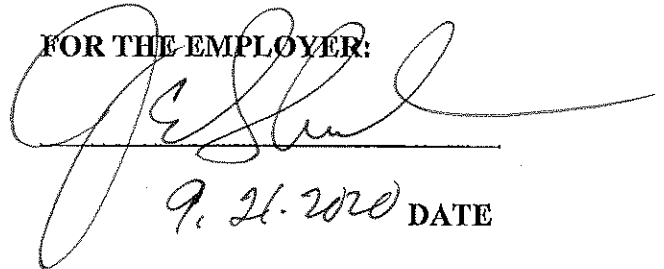 FOR THE EMPLOYER:
9. 21. 2020 DATE